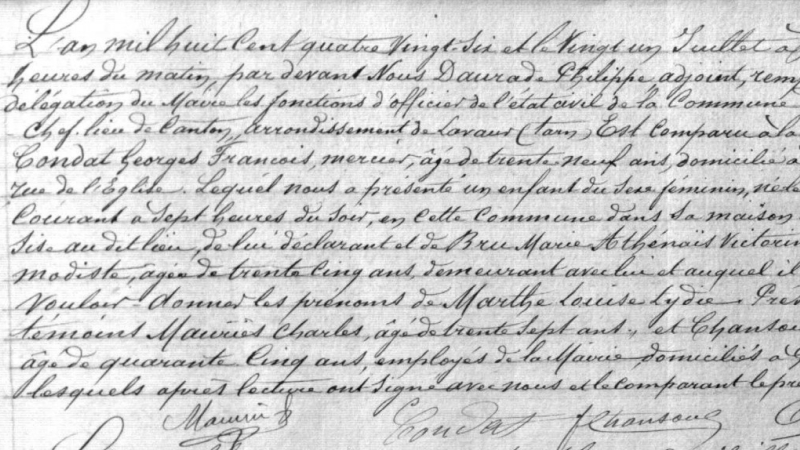 L'an mil huit Cent quatre Vingt-Six et le Vingt un Juillet à
heures du matin, par devant Nous Daurade Philippe adjoint, remp
délégation du Maire les fonctions d'officier de l'état civil de la Commune
Chef-lieu de Canton, arrondissement de Lavaur (tarn) Est Comparu à la
Condat Georges Francois, mercier, âgé de trente neuf ans, domicilié à
rue de l'Eglise. Lequel nous a présenté un enfant du Sexe féminin, née le
Courant à Sept heures du Soir, en Cette Commune dans Sa maison
Sise au dit lieu, de lui déclarant et de Bru Marie Athénaïs Victorin
modiste, agée de trente Cinq ans, demeurant avec lui et auquel il
Vouloir donner les prénoms de Marthe Louise Lydie. Prés
témoins Mauriès Charles, âgé de trente Sept ans, et Chansou
âgé de quarante Cinq ans, employés de la Mairie, domiciliés à G
lesquels après lecture ont Signé avec nous et le comparant le pré
Mauriès Condat Chansou